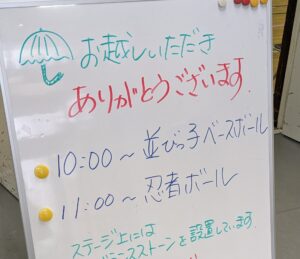 お越しいただき
ありがとうございます.
10:00～並びっ子ベースボール
11:00～忍者ボール
ステージ上には
ストーンを設置しています